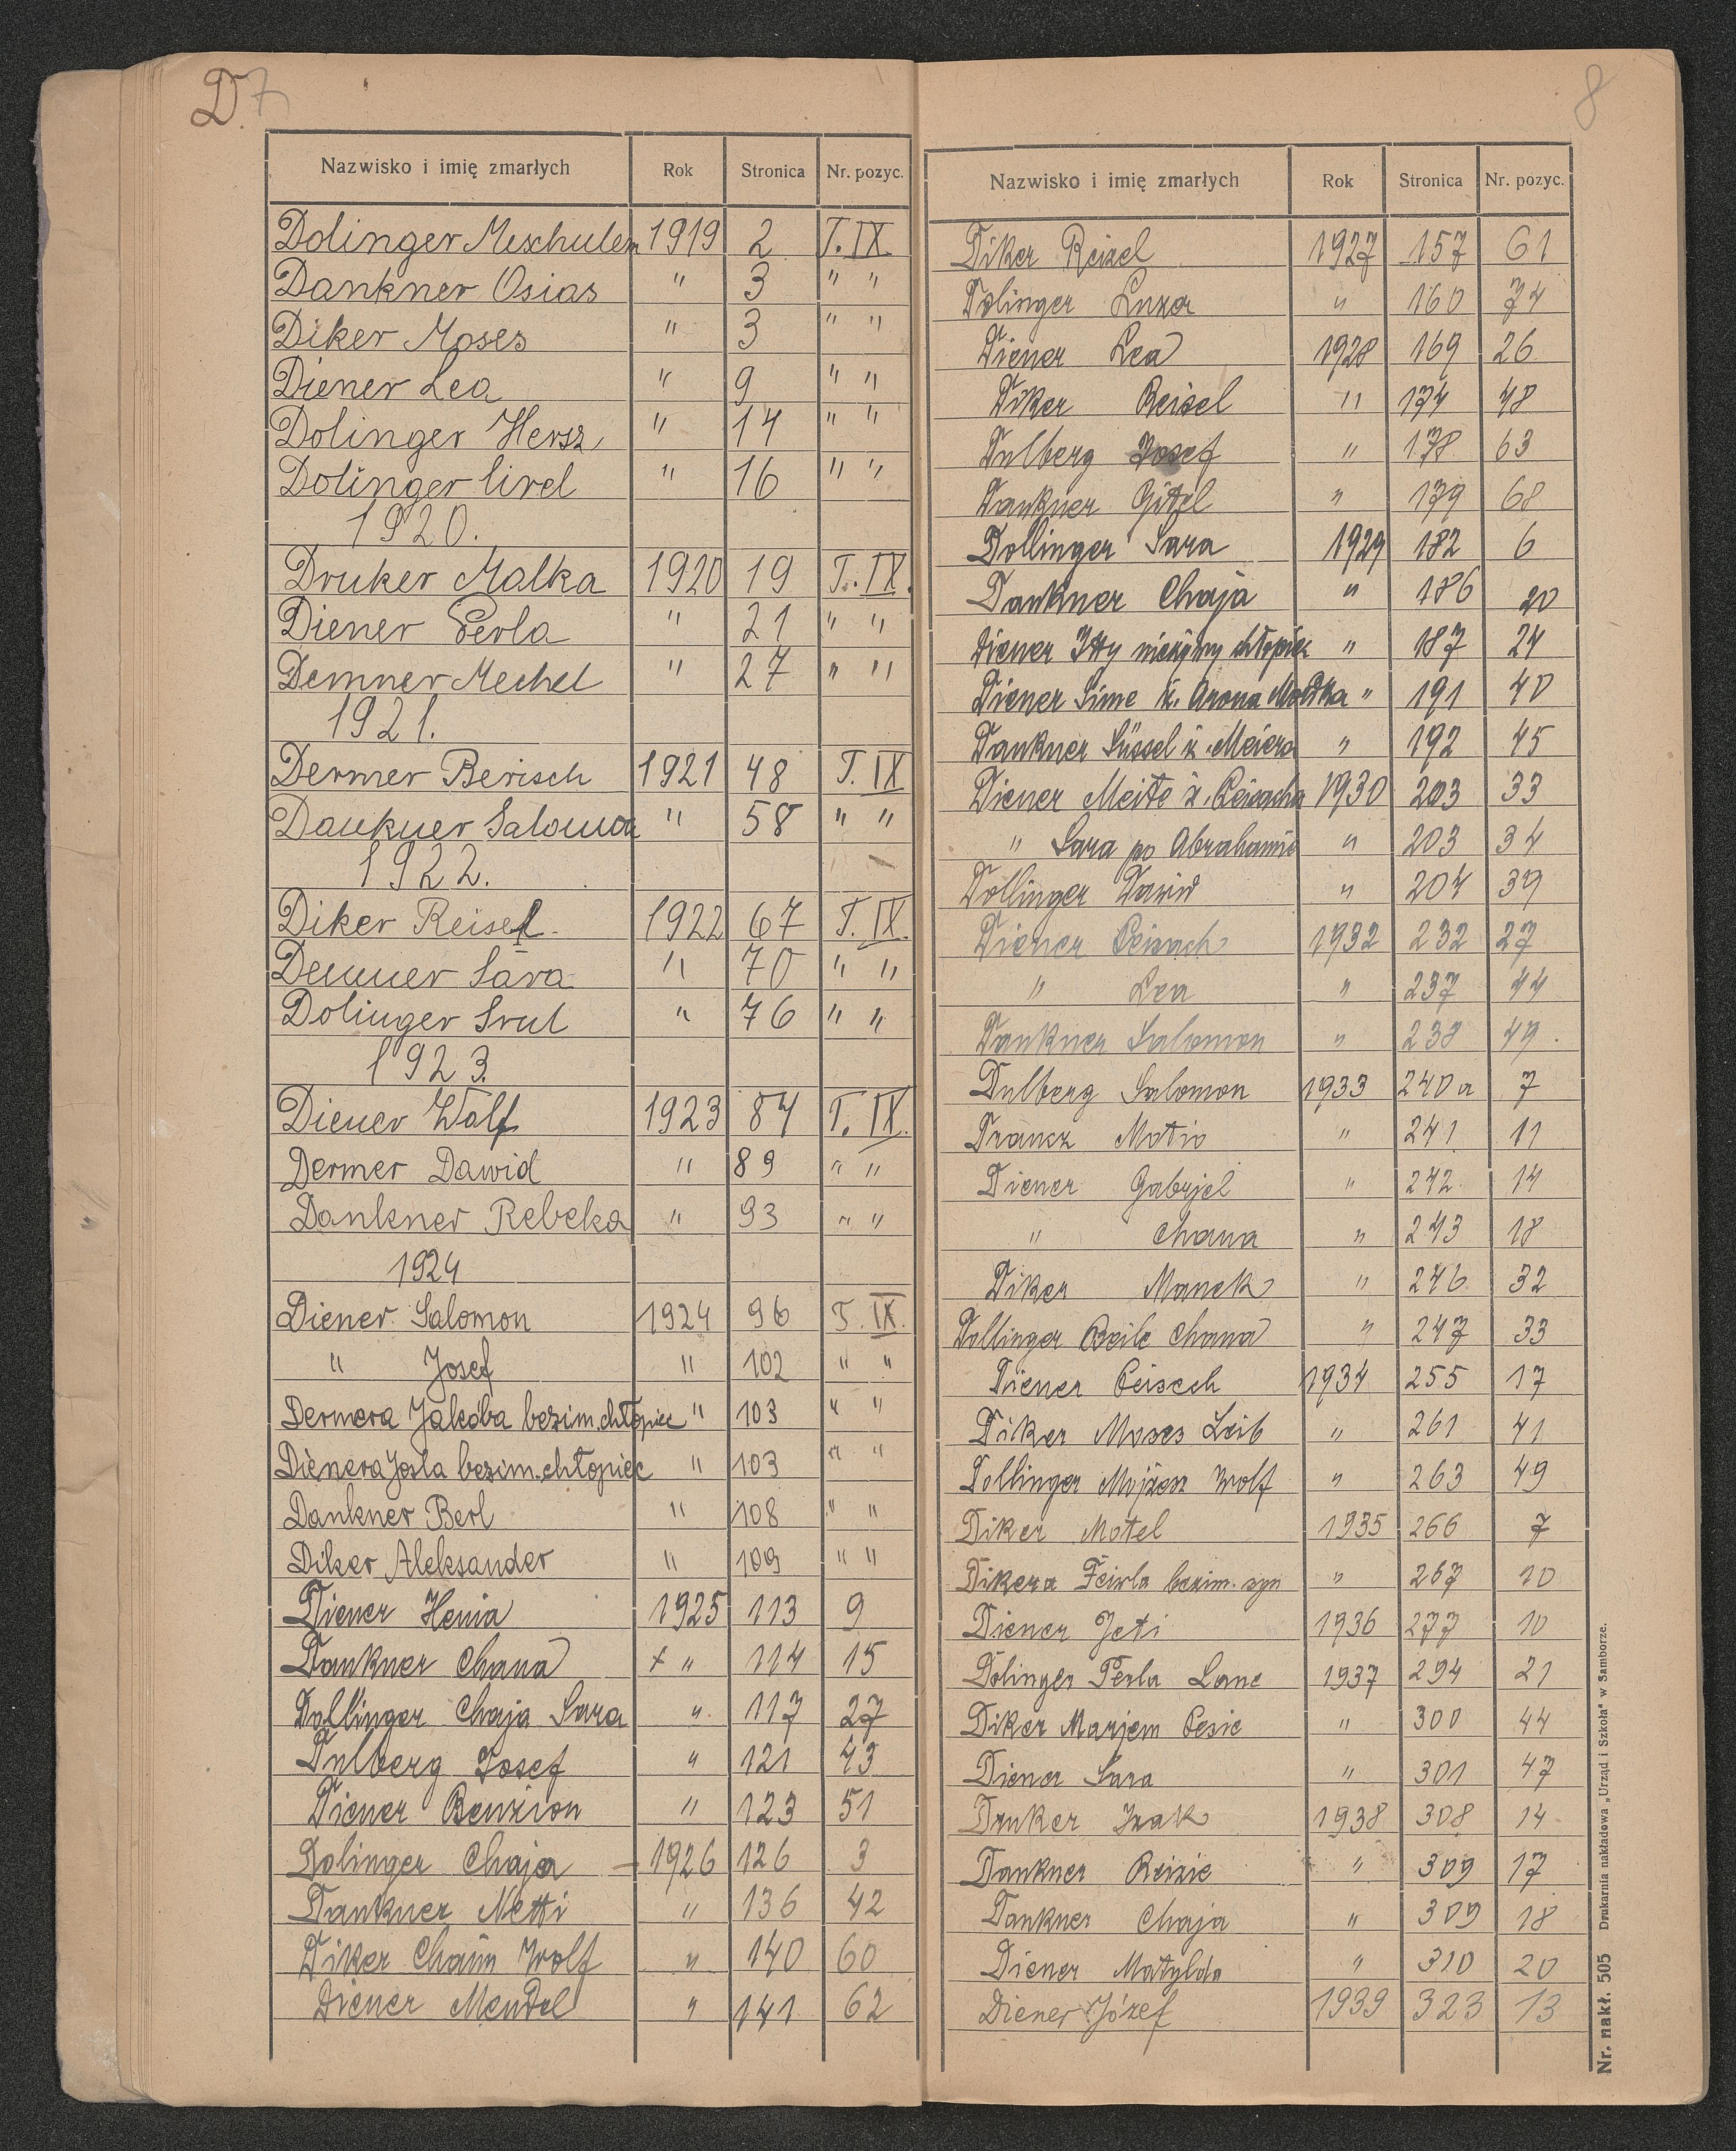 D. 7
Nazwisko i imię zmarłych Rok Stronica Nr. pozyc.
Dolinger Meschulem 1919 2 T. IX
Dankner Osias " 3 " "
Diker Moses " 3 " "
Diener Lea " 9 " "
Dolinger Hersz " 14 " "
Dolinger Cirel " 16 " "
1920.
Druker Malka 1920 19 T. IX.
Diener Perla " 21 " "
Demner Mechel " 27 " "
1921.
Dermer Berisch 1921 48 T. IX
Dankner Salomon " 58 " "
1922.
Diker Reisel 1922 67 T. IX.
Demner Sara " 70 " "
Dolinger Srul " 76 " "
1923.
Diener Wolf 1923 84 T. IX.
Dermer Dawid " 89 " "
Dankner Rebeka " 93 " "
1924
Diener Salomon 1924 96 T. IX.
" Josef " 102 " "
Dermera Jakóba bezim. chłopiec " 103 " "
Dienera Josla bezim. chłopiec " 103 " "
Dankner Berl " 108 " "
Diker Aleksander " 109 " "
Diener Henia 1925 113 9
Dankner Chana + " 114 15
Dollinger Chaja Sara " 117 27
Dulberg Josef " 121 43
Diener Benzion " 123 51
Dolinger Chaja - 1926 126 3
Dankner Netti " 136 42
Diker Chaim Wolf " 140 60
Diener Mendel " 141 62
8
Nazwisko i imię zmarłych Rok Stronica Nr. pozyc.
Diker Reizel 1927 157 61
Dolinger Luzer " 160 74
Diener Lea 1928 169 26
Diker Reisel " 174 48
Dulberg Josef " 178 63
Dankner Gitel " 179 68
Dollinger Sara 1929 182 6
Dankner Chaja " 186 20
Diener Itty nieżywy chłopiec " 187 24
Diener Sime ż. Arona Mordka " 191 40
Dankner Süssel ż. Meiera " 192 45
Diener Meite ż. Peisacha 1930 203 33
" Sara po Abrahamie " 203 34
Dollinger Dawid " 204 39
Diener Peisach 1932 232 27
" Lea " 237 44
Dankner Salomon " 238 49.
Dulberg Salomon 1933 240a 7
Drancz Motio " 241 11
Diener Gabrjel " 242 14
" Chana " 243 18
Diker Manek " 246 32
Dollinger Beile Chana " 247 33
Diener Peisech 1934 255 17
Diker Moses Leib " 261 41
Dollinger Mojżesz Wolf " 263 49
Diker Motel 1935 266 7
Dikera Feiwla bezim. syn " 267 10
Diener Jeti 1936 277 10
Dolinger Perla Lane 1937 294 21
Diker Marjem Pesie " 300 44
Diener Sara " 301 47
Druker Izak 1938 308 14
Dankner Reizie " 309 17
Dankner Chaja " 309 18
Diener Matylda " 310 20
Diener Józef 1939 323 13
Nr. nakł. 505 Drukarnia nakładowa „Urząd i Szkoła" w Samborze.